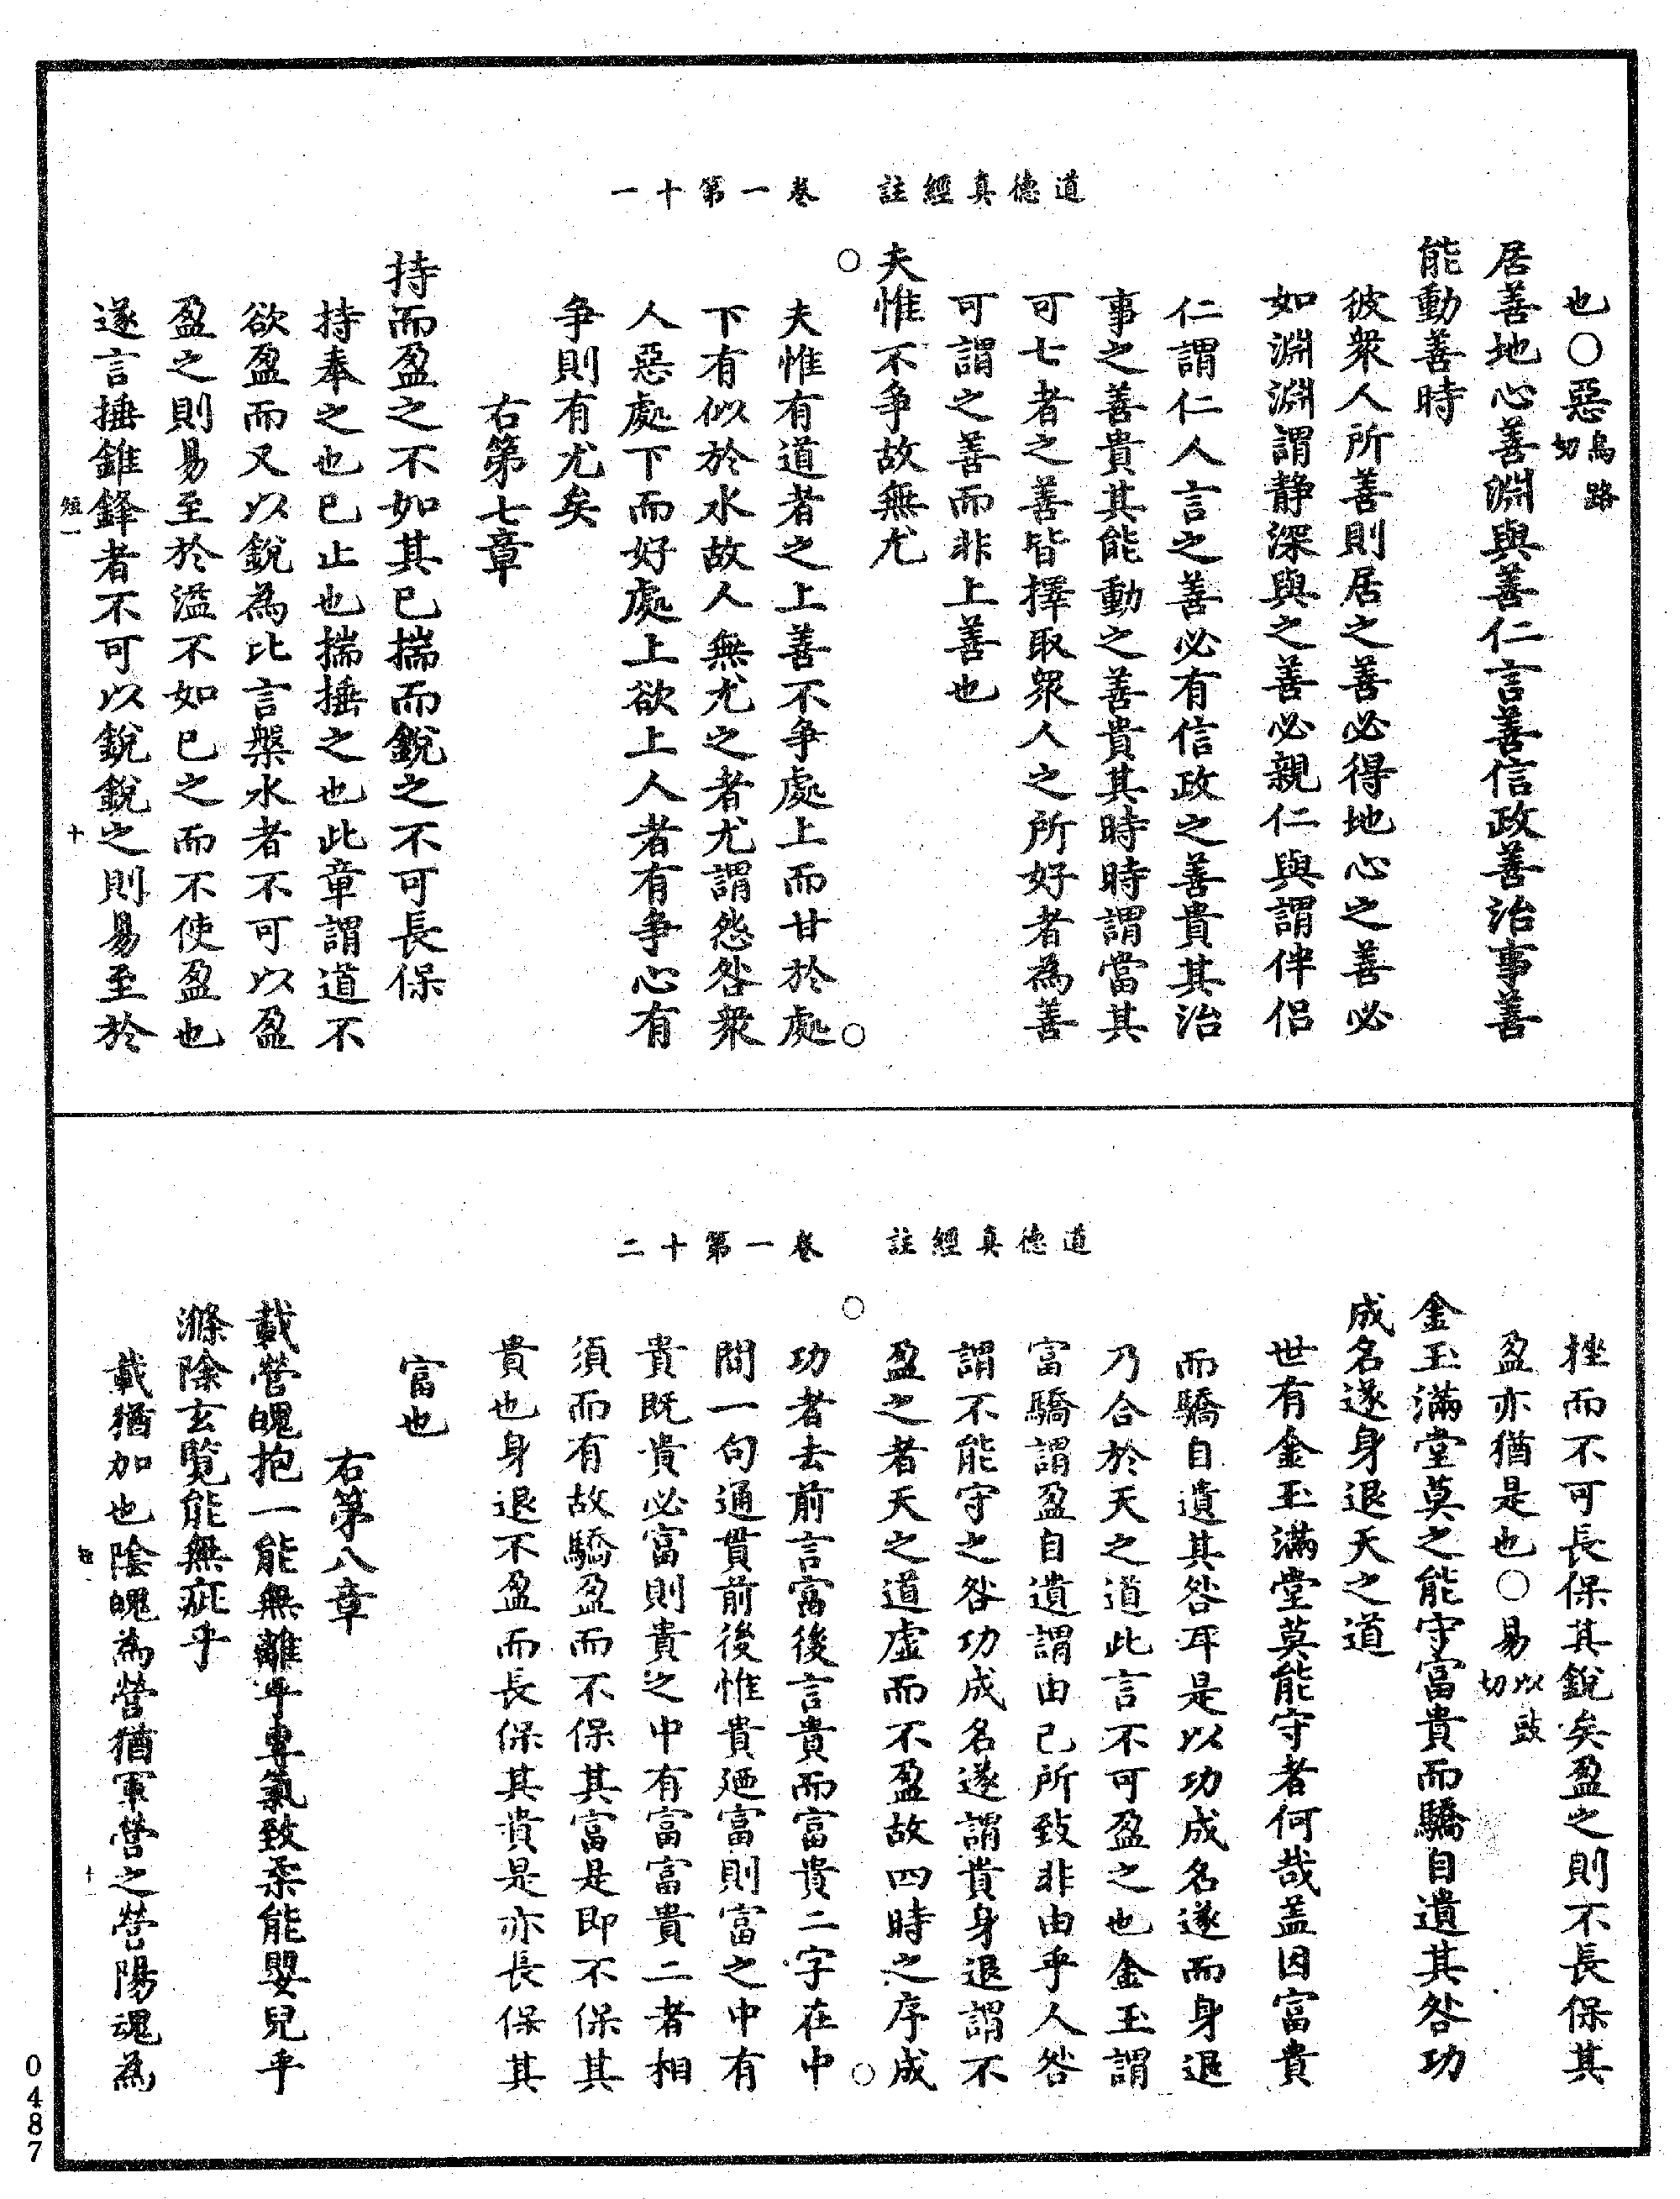 道德真經註　卷一第十一
也○惡烏路切
居善地心善淵與善仁言善信政善治事善
能動善時
彼衆人所善則居之善必得地心之善必
如淵淵謂静深與之善必親仁與謂伴侣
仁謂仁人言之善必有信政之善貴其治
事之善貴其能動之善貴其時時謂當其
可七者之善皆擇取衆人之所好者為善
可謂之善而非上善也
夫惟不争故無尤
夫惟有道者之上善不争處上而甘於處
下有似於水故人無尤之者尤謂怨咎衆
人惡處下而好處上欲上人者有争心有
争則有尤矣
右第七章
持而盈之不如其已揣而銳之不可長保
持奉之也已止也揣捶之也此章謂道不
欲盈而又以銳為比言槃水者不可以盈
盈之則易至於溢不如已之而不使盈也
遂言捶錐鋒者不可以銳銳之則易至於
短一　十
道德真經註　卷一第十二
挫而不可長保其銳矣盈之則不長保其
盈亦猶是也○易以豉切
金玉滿堂莫之能守富貴而驕自遺其咎功
成名遂身退天之道
世有金玉滿堂莫能守者何哉盖因富貴
而驕自遺其咎耳是以功成名遂而身退
乃合於天之道此言不可盈之也金玉謂
富驕謂盈自遺謂由己所致非由乎人咎
謂不能守之咎功成名遂謂貴身退謂不
盈之者天之道虛而不盈故四時之序成
功者去前言富後言貴而富貴二字在中
間一句通貫前後惟貴廼富則富之中有
貴既貴必富則貴之中有富富貴二者相
須而有故驕盈而不保其富是即不保其
貴也身退不盈而長保其貴是亦長保其
富也
右第八章
載營魄抱一能無離乎專氣致柔能嬰兒乎
滌除玄覽能無疵乎
載猶加也陰魄為營猶軍營之營陽魂為
0487